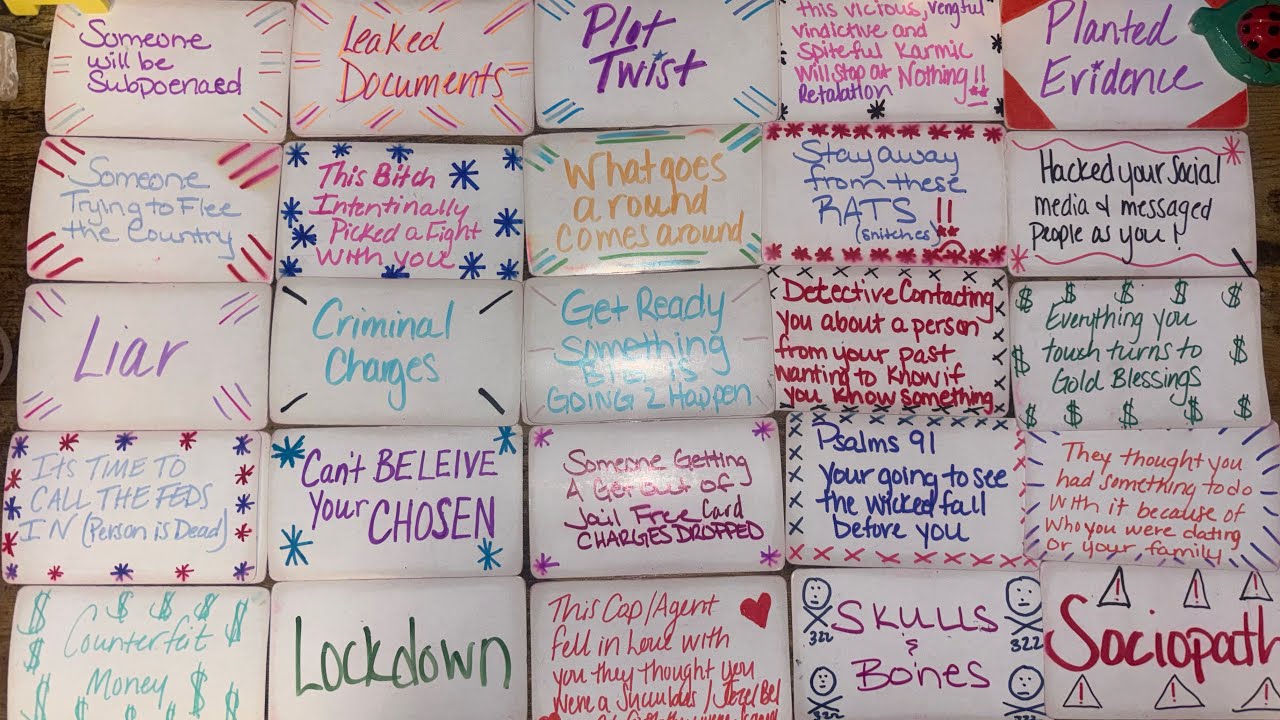 Someone
will be
Subpoenaed
Leaked
Documents
Plot
Twist
this vicious, vengful
vindictive and
Spiteful Karmic
Will stop at Nothing!!
Retalation
Planted
Evidence
Someone
Trying to Flee
the Country
This Bitch
Intentinally
Picked a Fight
With you
What goes
around
comes around
Stay away
from these
RATS !!
(snitches)
Hacked your Social
media & messaged
People as you!
Liar
Criminal
Charges
Get Ready
Something
BIG is
GOING 2 Happen
Detective Contacting
you about a person
from your past
wanting to know if
you know something
Everything you
touch turns to
Gold Blessings
Its TIME TO
CALL THE FEDS
IN (Person is Dead)
Can't BELEIVE
Your CHOSEN
Someone Getting
A Get out of
Jail Free Card
CHARGES DROPPED
Psalms 91
Your going to see
the wicked fall
before you
They thought you
had something to do
With it because of
Who you were dating
or your family
Counterfit
Money
Lockdown
This Cop/Agent
fell in Love with
you they thought you
were a
SKULLS
&
Bones
322
322
322
Sociopath